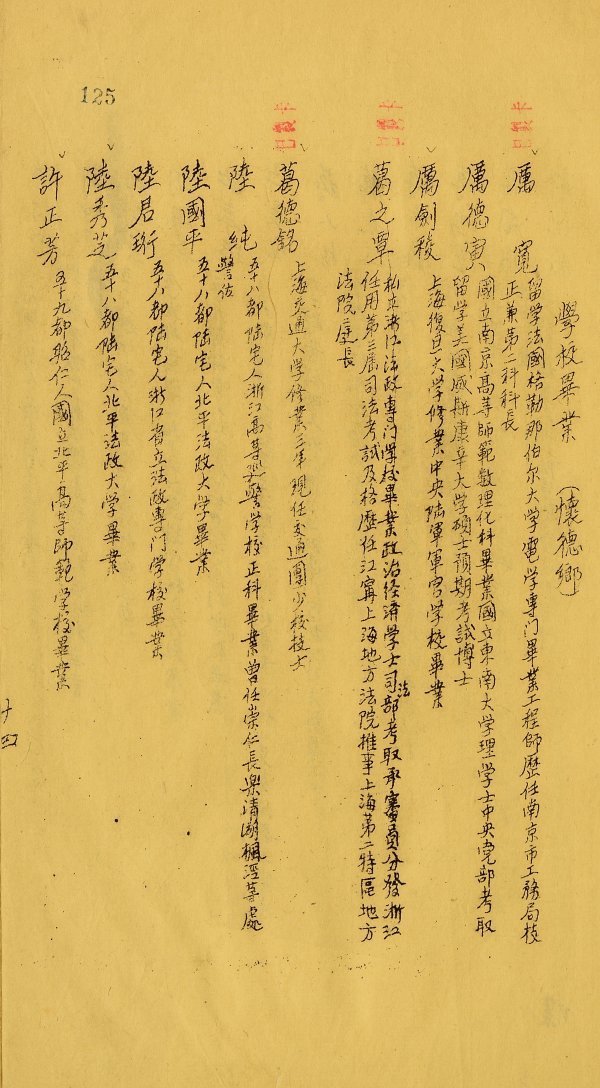 125
學校畢業 (懷德鄉)
厲寬 留学法國格勒那伯尔大学電学專门畢業工程師歷任南京市工務局技
正兼第二科科長
厲德寅 國立南京高等師範数理化科畢業國立東南大学理学士中央党部考取
留学美國威斯康辛大学碩士預期考試博士
厲劍稜 上海復旦大学修業中央陸軍軍官学校畢業
葛之覃 私立浙江法政專门学校畢業政治经濟学士司法部考取承審員分發浙江
任用第三屆司法考試及格歷任江寗上海地方法院推事上海第二特區地方
法院庭長
葛德銘 上海交通大学修業三年現任交通團少校技士
陸純 五十八都陸宅人浙江高等巡警学校正科畢業曾任崇仁長樂清湖楓涇等處
警佐
陸國平 五十八都陸宅人北平法政大学畢業
陸君珩 五十八都陸宅人浙江省立法政專门学校畢業
陸秀芝 五十八都陸宅人北平法政大学畢業
許正芳 五十九都昭仁人國立北平高等師範学校畢業
十四